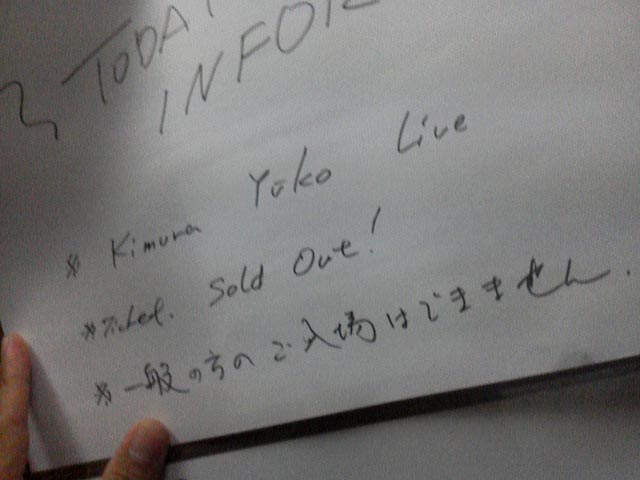 TODAY
INFOR
※ Kimura Yūko Live
※Ticket. Sold Out!
※一般の方のご入場はできません.